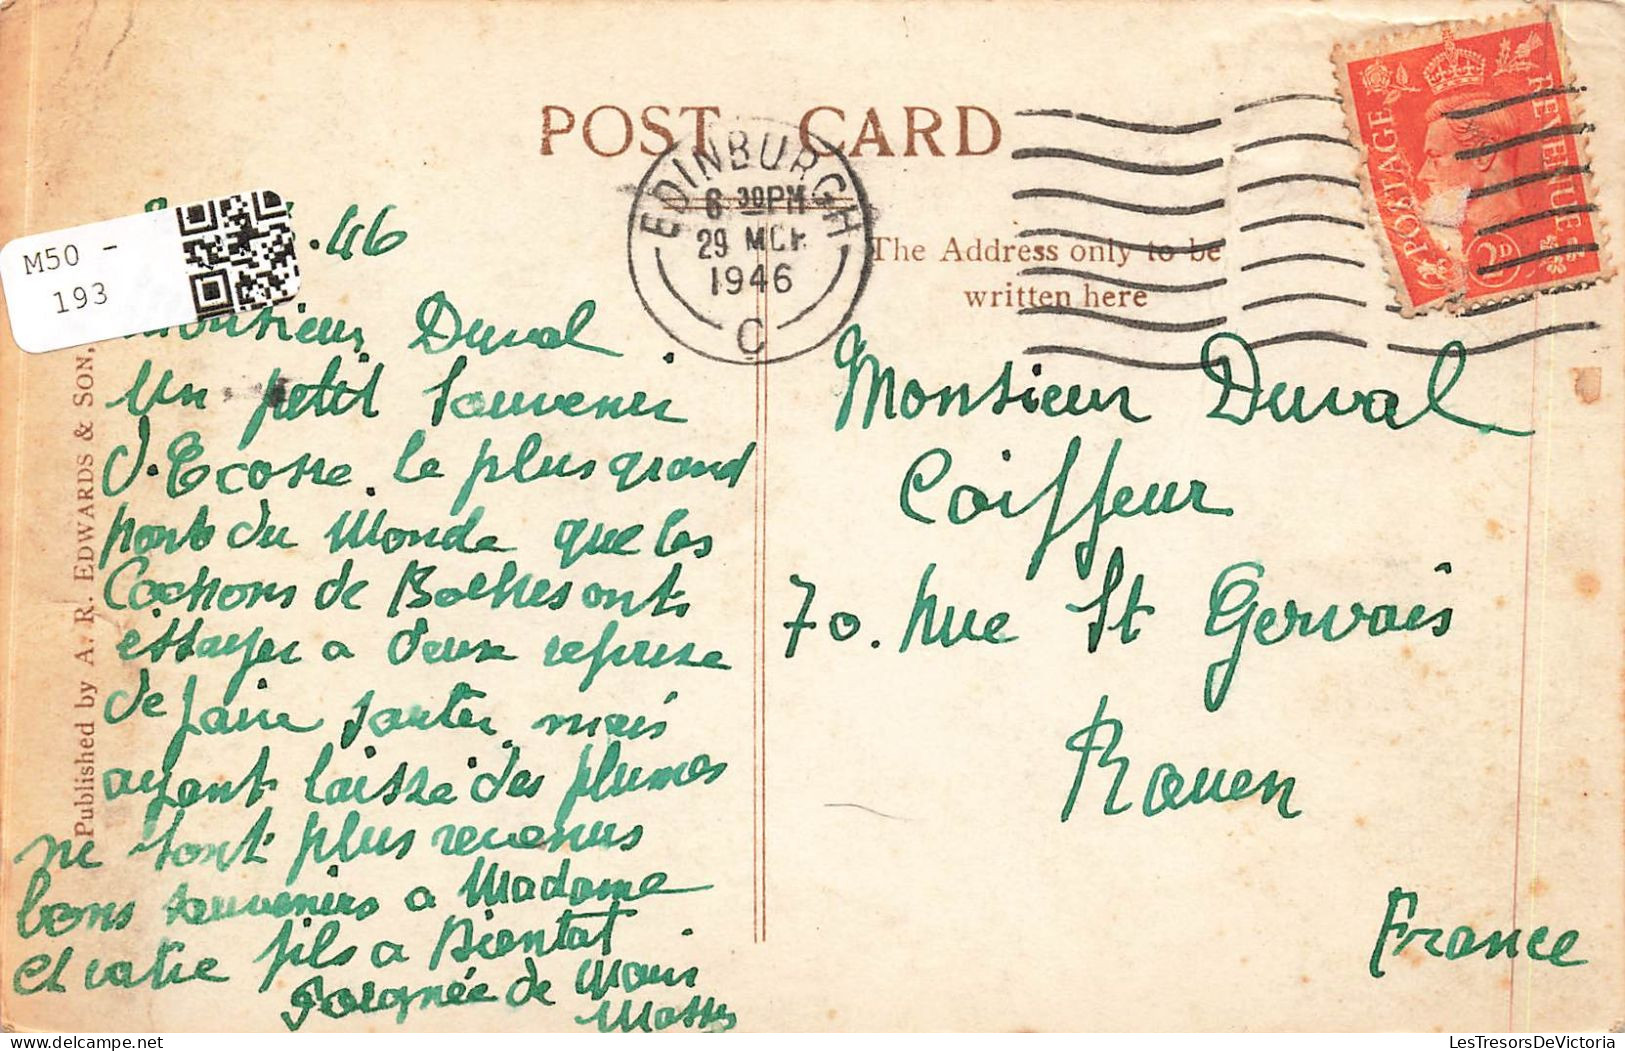 POST CARD
EDINBURGH
6 30PM
29 MCH
1946
C
POSTAGE
REVENUE
2D
M50 -
193
.46
The Address only to be
written here
Published by A. R. EDWARDS & SON,
Monsieur Duval
Un petit souvenir
d'Ecosse. le plus grand
pont du Monde que les
Cochons de Boches ont
essayer a deux reprise
de faire sauter mais
ayant laissé des plumes
ne sont plus revenus
bons souvenirs a Madame
et votre fils a Bientat
Poignée de Main
Monsieur Duval
Coiffeur
70. Rue St Gervais
Rouen
France
LesTresorsDeVictoria